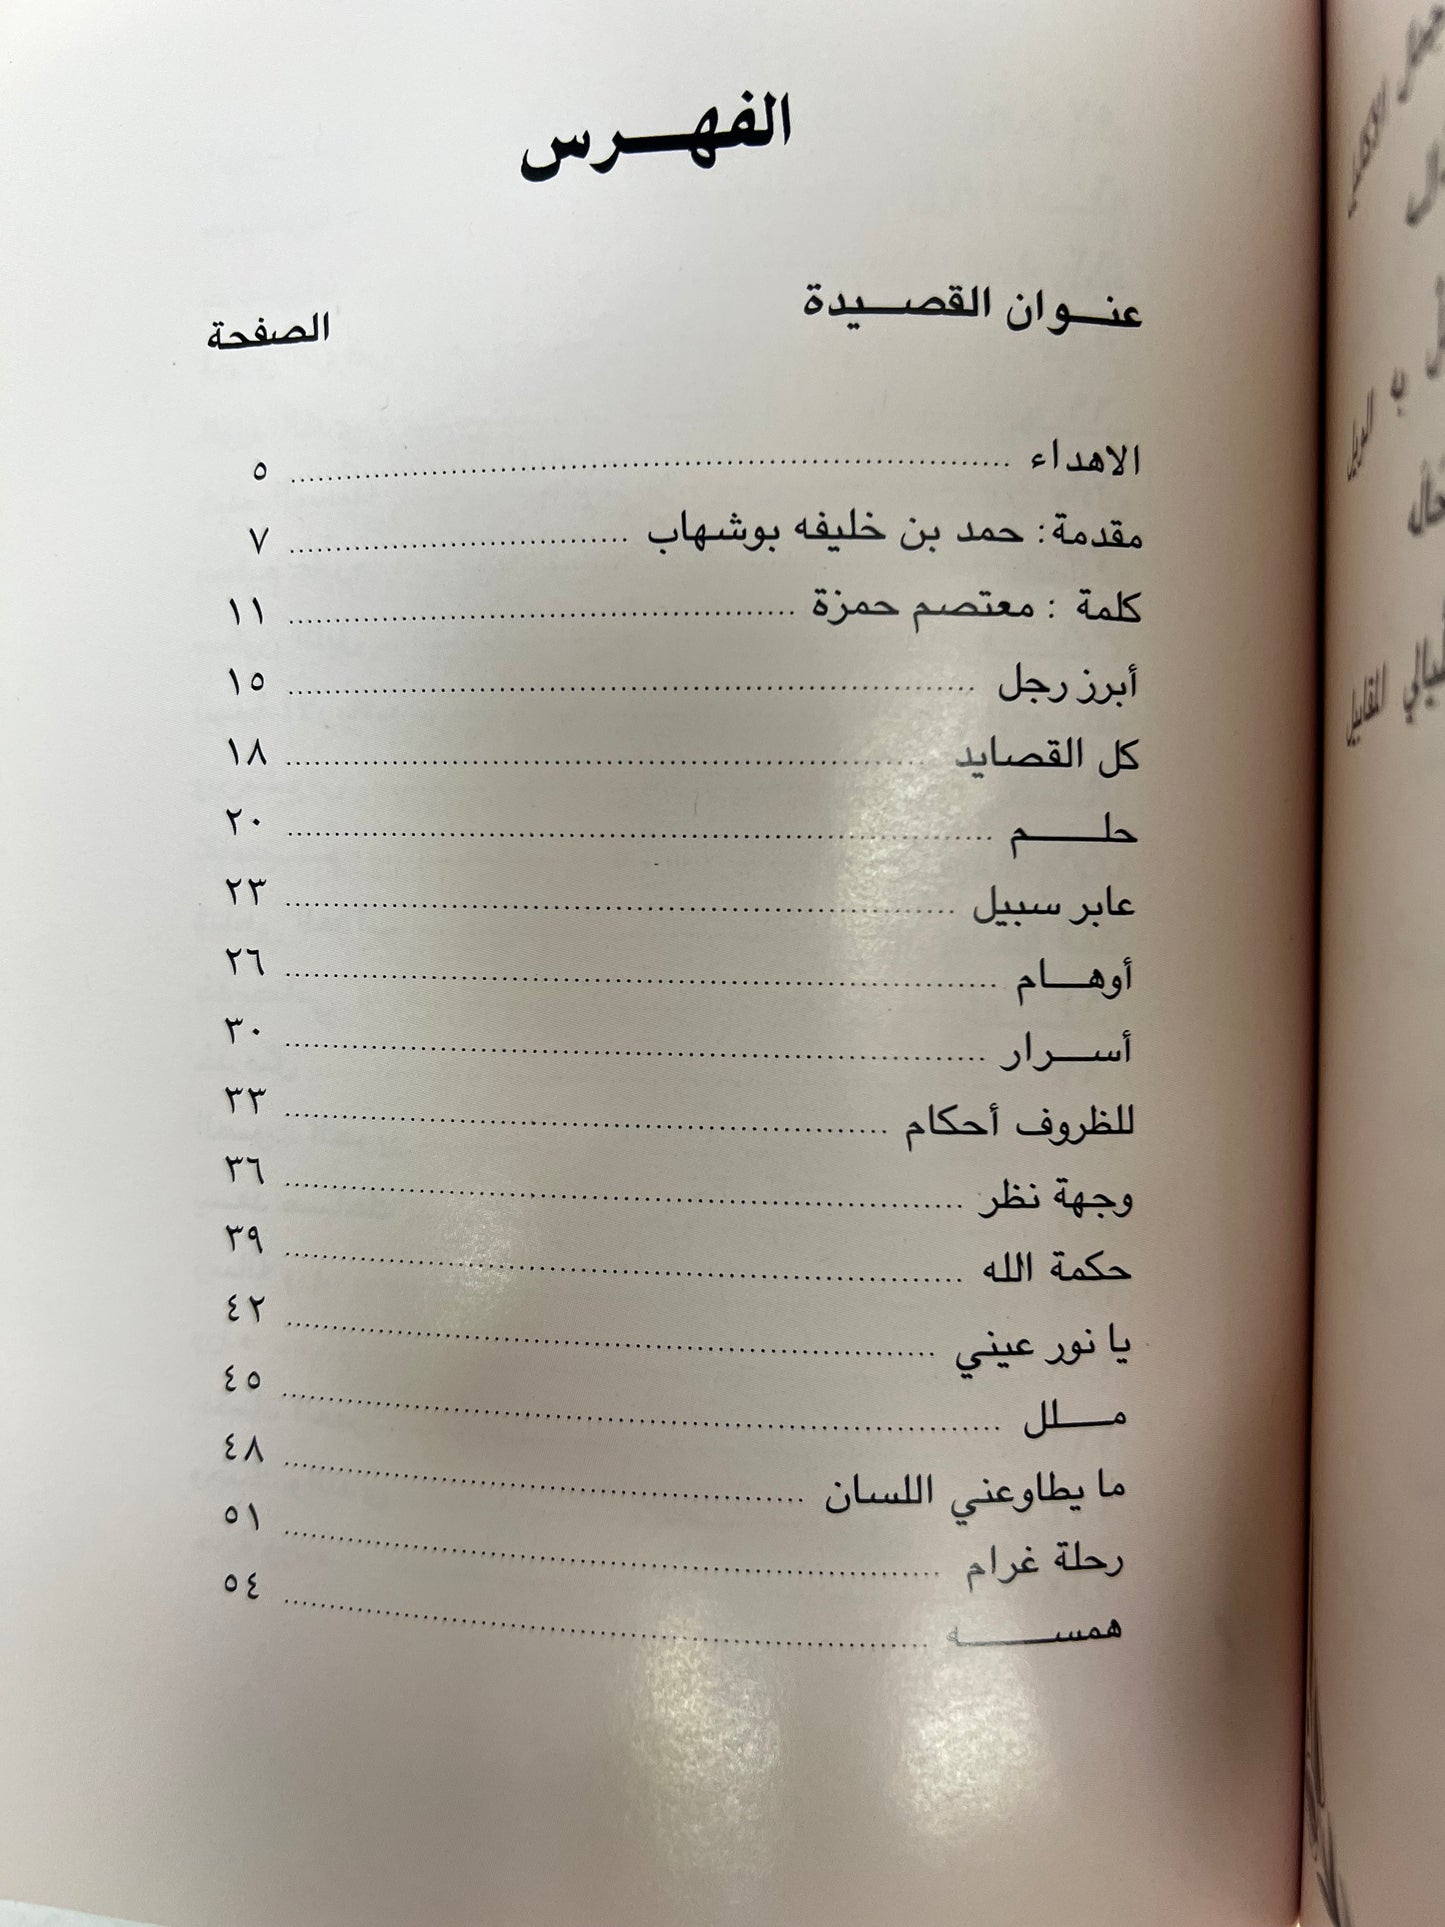 الفهرس
عنوان القصيدة الصفحة
الاهداء ٥
مقدمة: حمد بن خليفه بوشهاب ٧
كلمة : معتصم حمزة ١١
أبرز رجل ١٥
كل القصايد ١٨
حلم ٢٠
عابر سبيل ٢٣
أوهام ٢٦
أسرار ٣٠
للظروف أحكام ٣٣
وجهة نظر ٣٦
حكمة الله ٣٩
يا نور عيني ٤٢
ملل ٤٥
ما يطاوعني اللسان ٤٨
رحلة غرام ٥١
همسه ٥٤